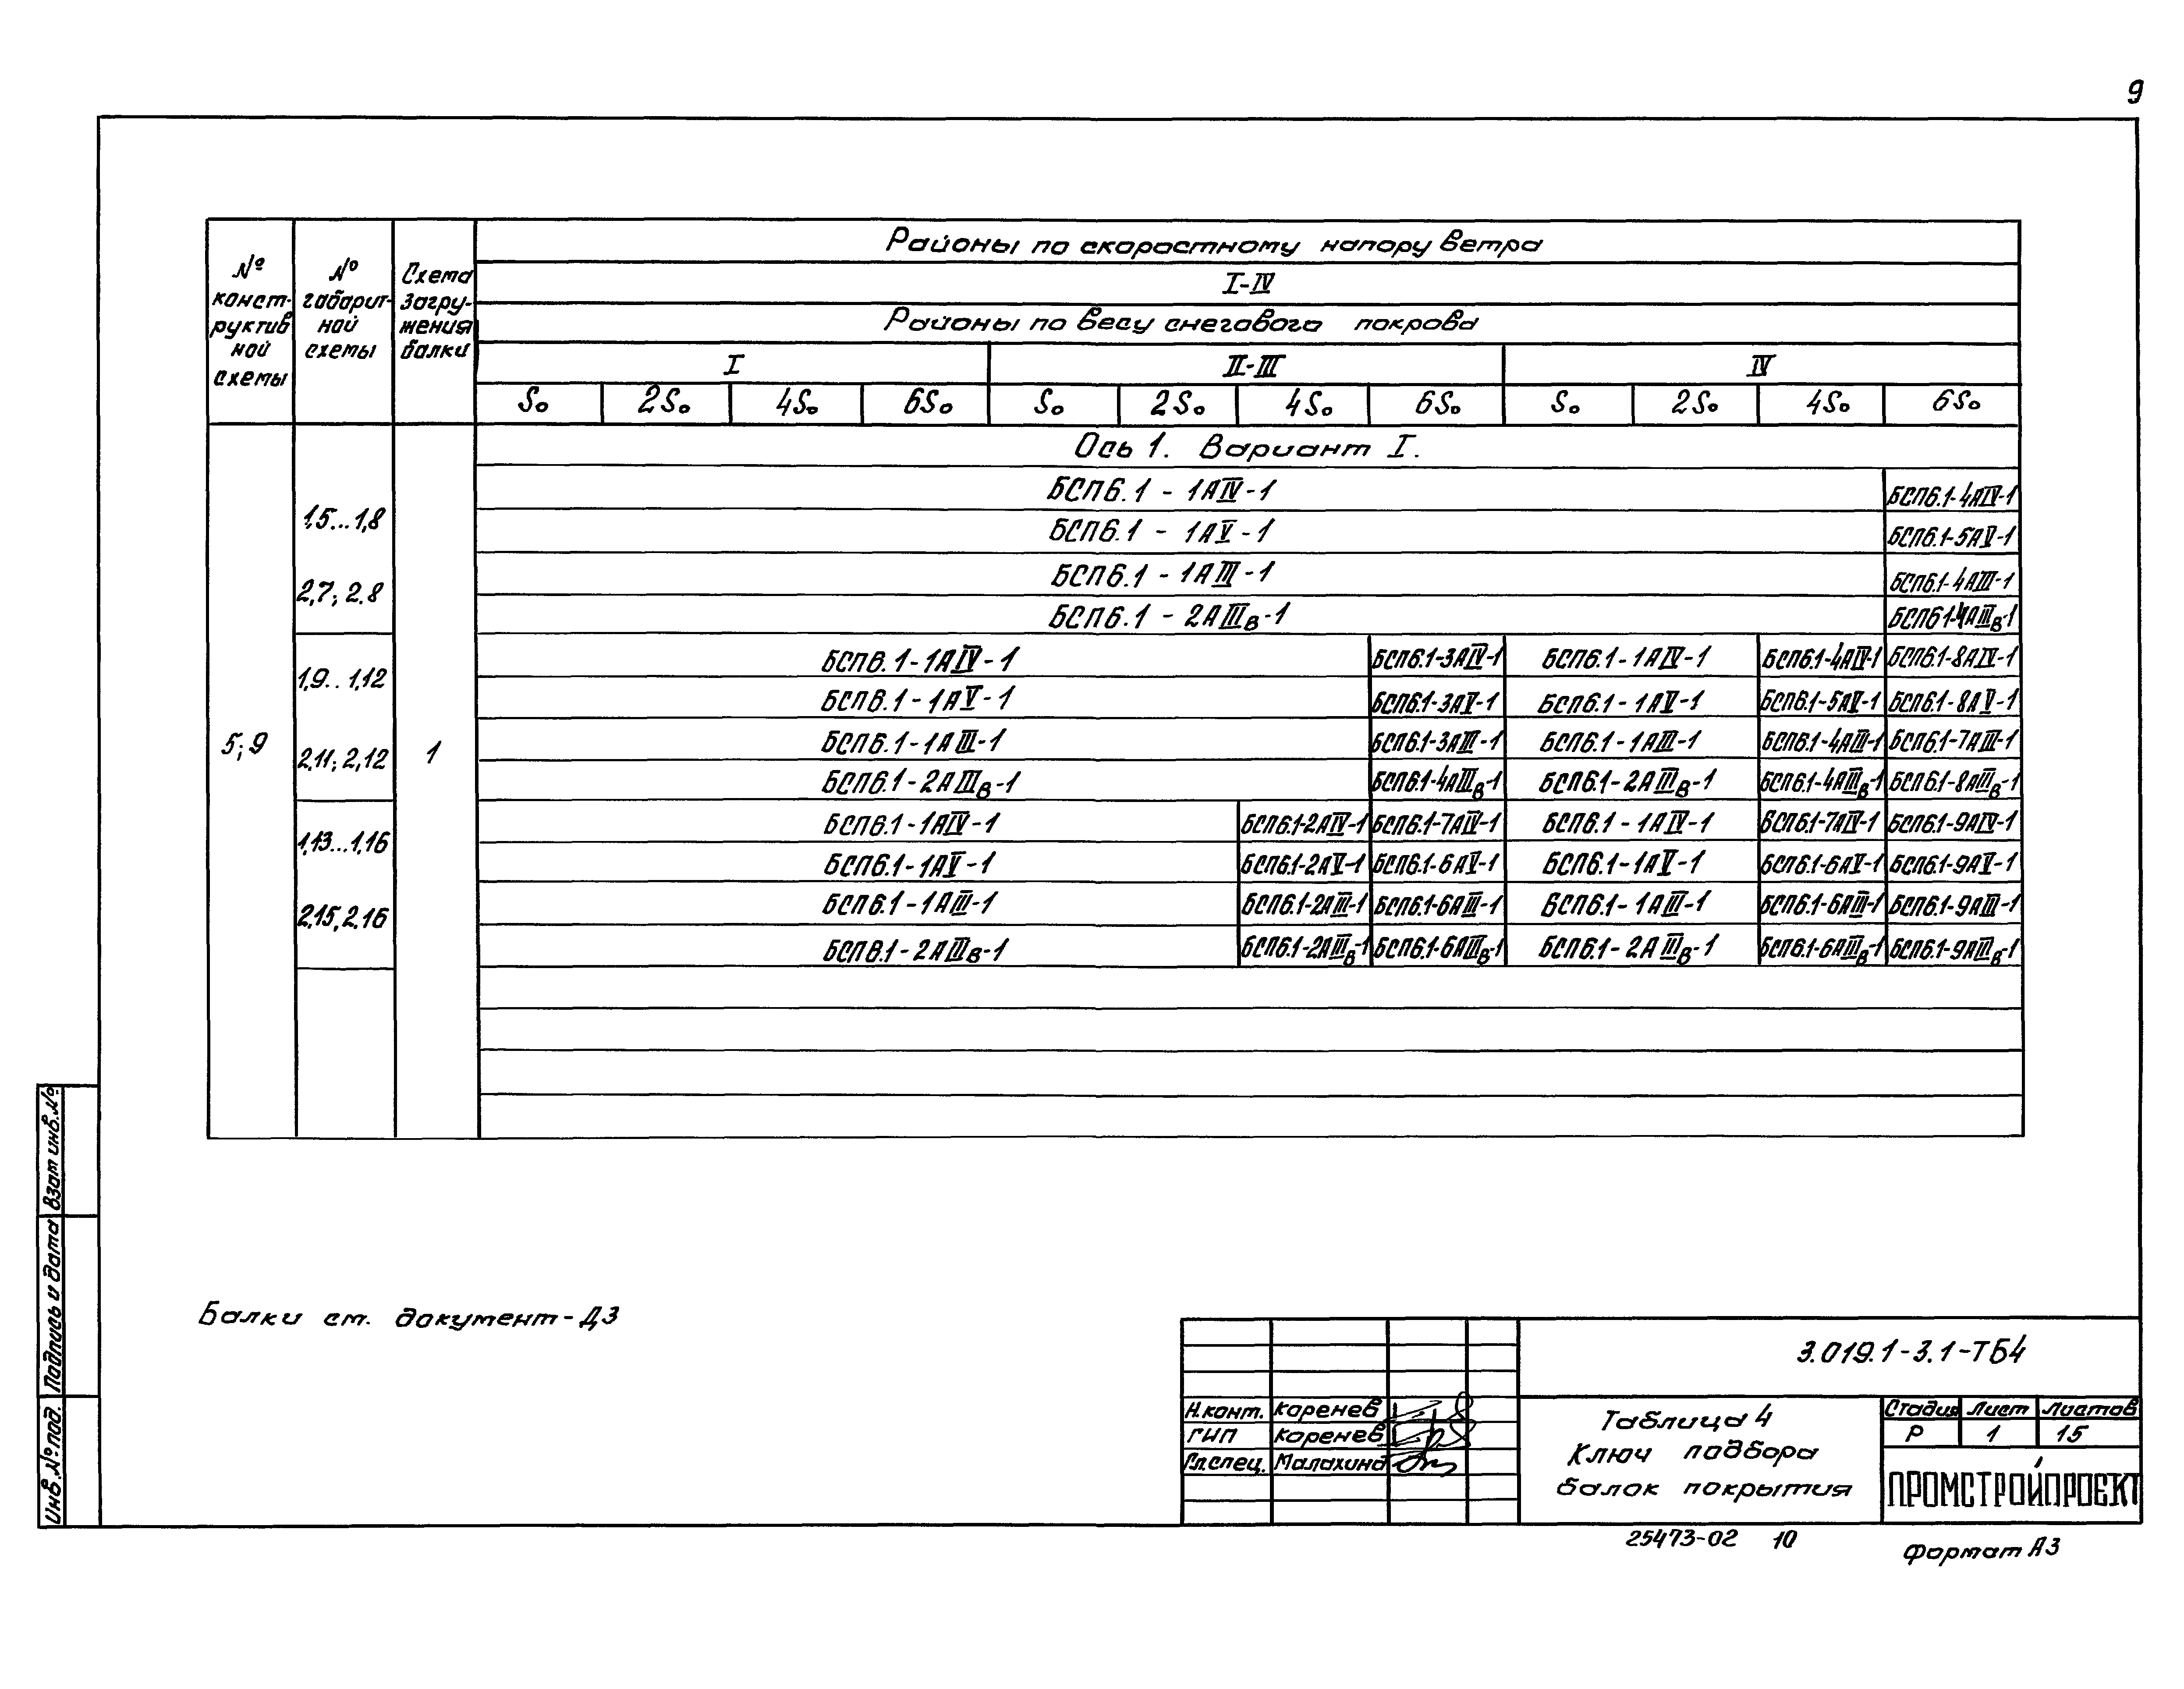 9
№ конст-руктив ной схемы
№ габарит-ной схемы
Схема загру-жения балки
Районы по скоростному напору ветра
I-IV
Районы по весу снегового покрова
I II-III IV
S₀ 2S₀ 4S₀ 6S₀ S₀ 2S₀ 4S₀ 6S₀ S₀ 2S₀ 4S₀ 6S₀
Ось 1. Вариант I.
5; 9
1
1,5...1,8
2,7; 2.8
БСП6.1 - 1АIV-1 БСП6.1-4АIV-1
БСП6.1 - 1АV-1 БСП6.1-5АV-1
БСП6.1 - 1АIII-1 БСП6.1-4АIII-1
БСП6.1 - 2АIIIв-1 БСП6.1-4АIIIв-1
1,9..1,12
2.11; 2,12
БСП6.1-1АIV-1 БСП6.1-3АIV-1 БСП6.1-1АIV-1 БСП6.1-4АIV-1 БСП6.1-8АIV-1
БСП6.1-1АV-1 БСП6.1-3АV-1 БСП6.1-1АV-1 БСП6.1-5АV-1 БСП6.1-8АV-1
БСП6.1-1АIII-1 БСП6.1-3АIII-1 БСП6.1-1АIII-1 БСП6.1-4АIII-1 БСП6.1-7АIII-1
БСП6.1-2АIIIв-1 БСП6.1-4АIIIв-1 БСП6.1-2АIIIв-1 БСП6.1-4АIIIв-1 БСП6.1-8АIIIв-1
1,13...1,16
2,15, 2.16
БСП6.1-1АIV-1 БСП6.1-2АIV-1 БСП6.1-7АIV-1 БСП6.1-1АIV-1 БСП6.1-7АIV-1 БСП6.1-9АIV-1
БСП6.1-1АV-1 БСП6.1-2АV-1 БСП6.1-6АV-1 БСП6.1-1АV-1 БСП6.1-6АV-1 БСП6.1-9АV-1
БСП6.1-1АIII-1 БСП6.1-2АIII-1 БСП6.1-6АIII-1 БСП6.1-1АIII-1 БСП6.1-6АIII-1 БСП6.1-9АIII-1
БСП6.1-2АIIIв-1 БСП6.1-2АIIIв-1 БСП6.1-6АIIIв-1 БСП6.1-2АIIIв-1 БСП6.1-6АIIIв-1 БСП6.1-9АIIIв-1
Балки см. документ-Д3
Взам инв.№
Подпись и дата
Инв.№ под.
3.019.1-3.1-ТБ4
Н.конт. Коренев
ГИП Коренев
Гл.спец. Малахина
Таблица 4
Ключ подбора
балок покрытия
Стадия Лист Листов
Р 1 15
ПРОМСТРОЙПРОЕКТ
25473-02 10
Формат А3